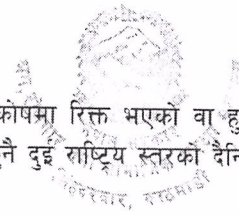 कोषमा रिक्त भएको वा हु
नै दुई राष्ट्रिय स्तरको दैनि